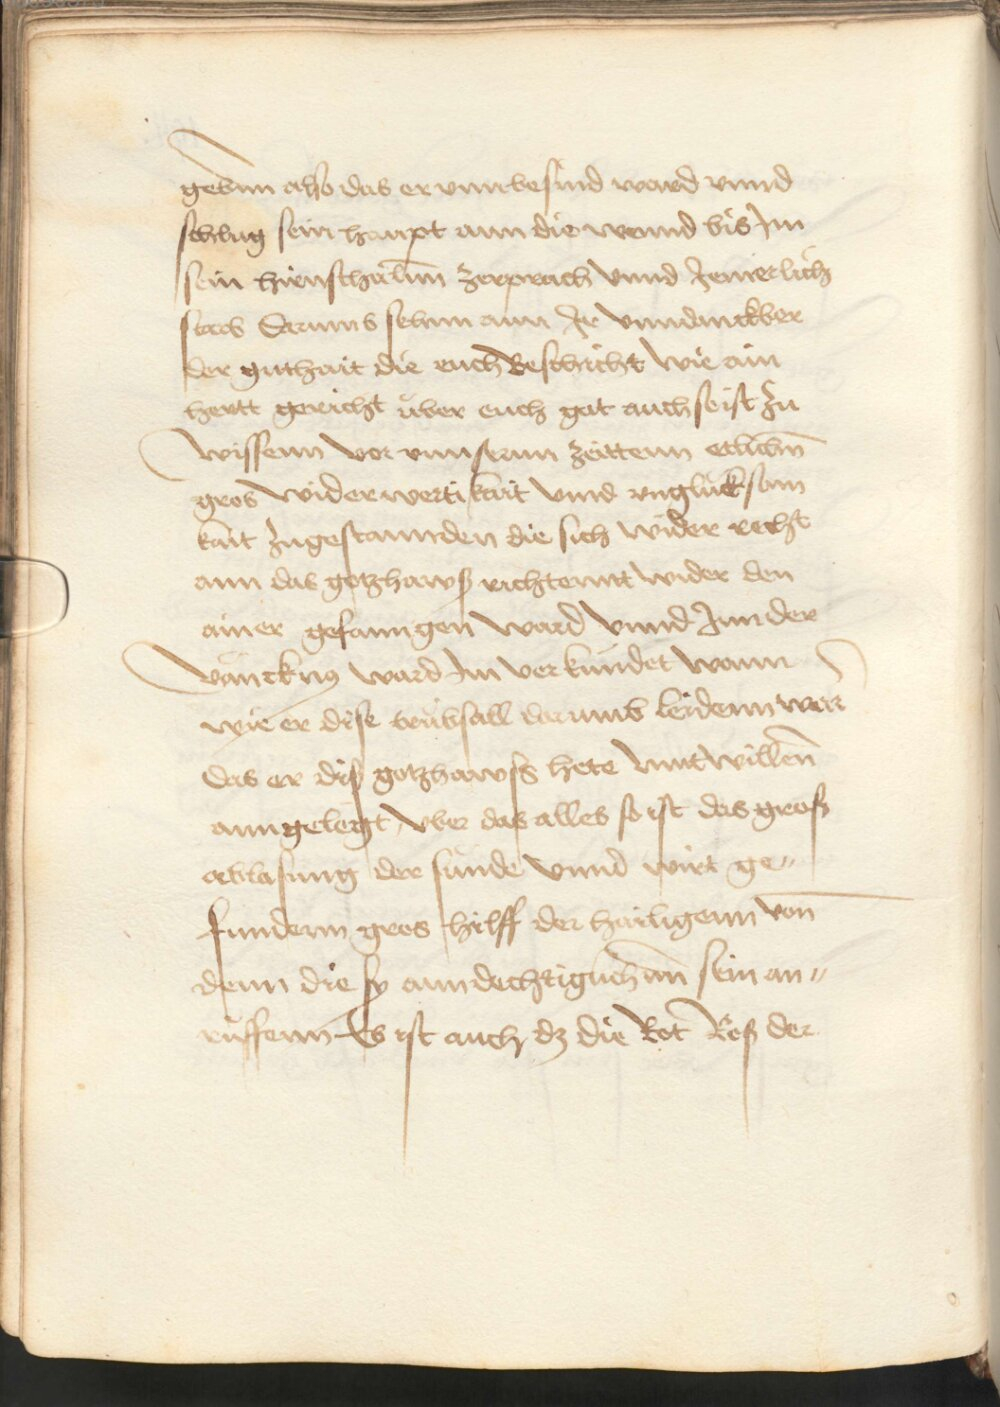 gebnn also das er vnnbesind ward vnnd
schlug sein haupt ann die wannd bis Im
sein hirnschalnn zerprach Vnnd Jemerlich
starb Darumb sehnn ann Ir Vnndanckber
der guthait die euch Beschicht wie ain
hertt gericht über euch gat auch so ist zu
wissenn Vor vnnsernn zeittenn etlichen
gros widerwertikait Vnnd vnglücksam
kait zugestannden die sich wider recht
ann das gotzhaws richtennt wider den
ainer gefanngen ward Vnnd Inn der
Vanncknus ward Im verkündet wann
wie er dise trübsall darumb leidenn wer
das er dis gotzhawss hete mutwillen
anngelegt, Vber das alles so ist das gros
ablasung der sünde Vnnd wirt ge„
fundenn gros hilff der hailigenn von
denn die sy anndechtiglichenn sein an„
rüffenn Es ist auch dz die Rot Ros der